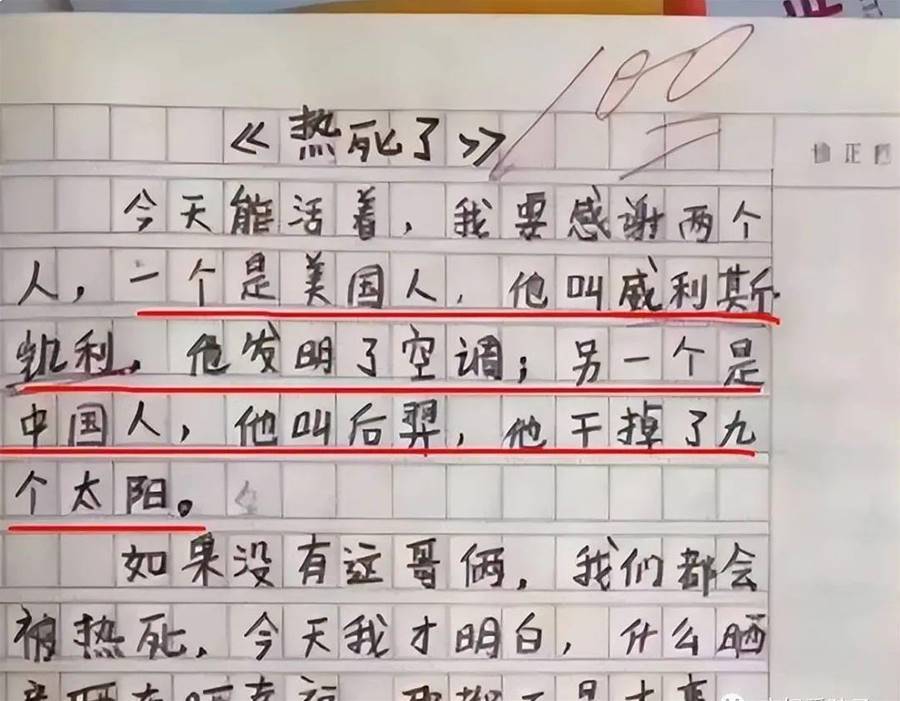 100
《热死了》
今天能活着，我要感谢两个
人，一个是美国人，他叫威利斯
凯利，他发明了空调；另一个是
中国人，他叫后羿，他干掉了九
个太阳。
如果没有这哥俩，我们都会
被热死，今天我才明白，什么晒